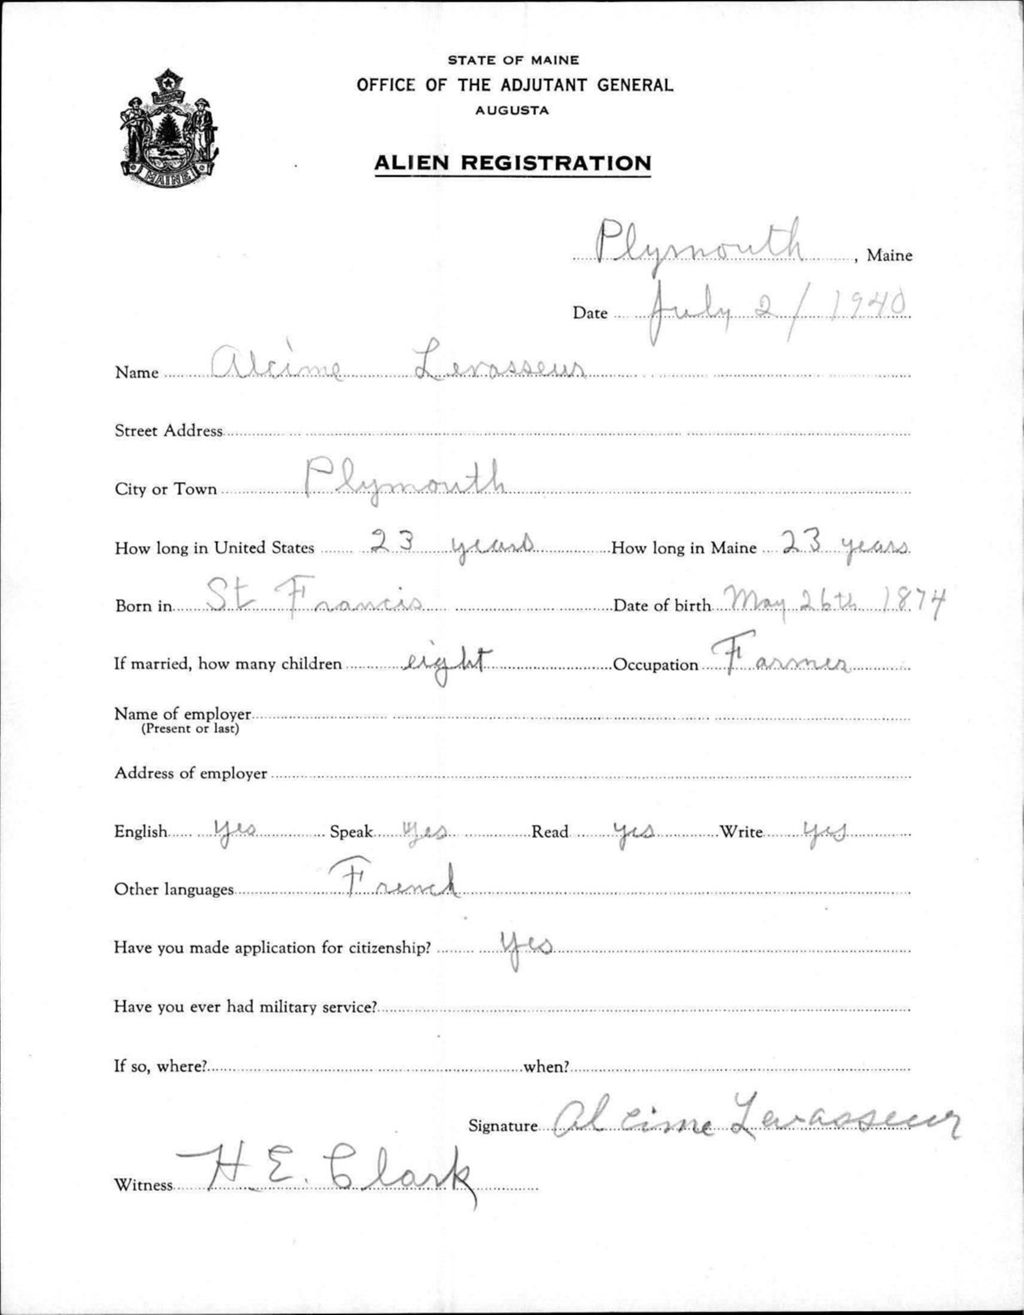 STATE OF MAINE
OFFICE OF THE ADJUTANT GENERAL
AUGUSTA
ALIEN REGISTRATION
MAINE
Plymouth, Maine
Date July 2/1940
Name Alcime Levasseur
Street Address
City or Town Plymouth
How long in United States 23 years How long in Maine 23 years
Born in St Francis Date of birth May 26th 1874
If married, how many children eight Occupation Farmer
Name of employer
(Present or last)
Address of employer
English yes Speak yes Read yes Write yes
Other languages French
Have you made application for citizenship? yes
Have you ever had military service?
If so, where? when?
Signature Alcime Levasseur
Witness H. E. Clark